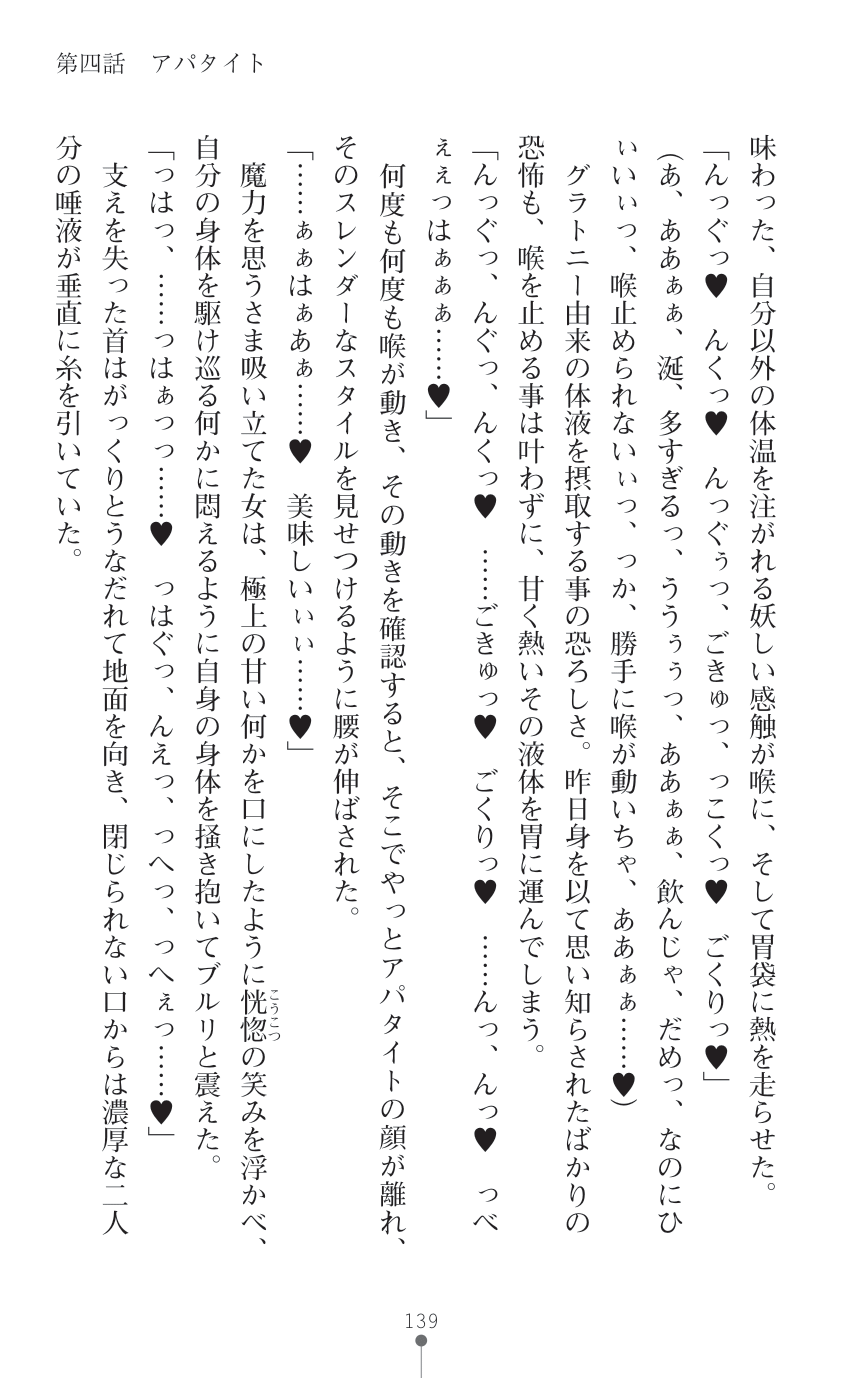 第四話　アパタイト
味わった、自分以外の体温を注がれる妖しい感触が喉に、そして胃袋に熱を走らせた。
「んっぐっ♥　んくっ♥　んっぐぅっ、ごきゅっ、っこくっ♥　ごくりっ♥」
（あ、ああぁぁ、涎、多すぎるっ、ううぅぅっ、ああぁぁ、飲んじゃ、だめっ、なのにひ
ぃいいぃっ、喉止められないぃっ、っか、勝手に喉が動いちゃ、ああぁぁ……♥）
　グラトニー由来の体液を摂取する事の恐ろしさ。昨日身を以て思い知らされたばかりの
恐怖も、喉を止める事は叶わずに、甘く熱いその液体を胃に運んでしまう。
「んっぐっ、んぐっ、んくっ♥　……ごきゅっ♥　ごくりっ♥　……んっ、んっ♥　っべ
ぇぇっはぁぁぁ……♥」
　何度も何度も喉が動き、その動きを確認すると、そこでやっとアパタイトの顔が離れ、
そのスレンダーなスタイルを見せつけるように腰が伸ばされた。
「……ぁぁはぁあぁ……♥　美味しいぃぃ……♥」
　魔力を思うさま吸い立てた女は、極上の甘い何かを口にしたように恍惚こうこつの笑みを浮かべ、
自分の身体を駆け巡る何かに悶えるように自身の身体を掻き抱いてブルリと震えた。
「っはっ、……っはぁっっ……♥　っはぐっ、んえっ、っへっ、っへぇっ……♥」
　支えを失った首はがっくりとうなだれて地面を向き、閉じられない口からは濃厚な二人
分の唾液が垂直に糸を引いていた。
139